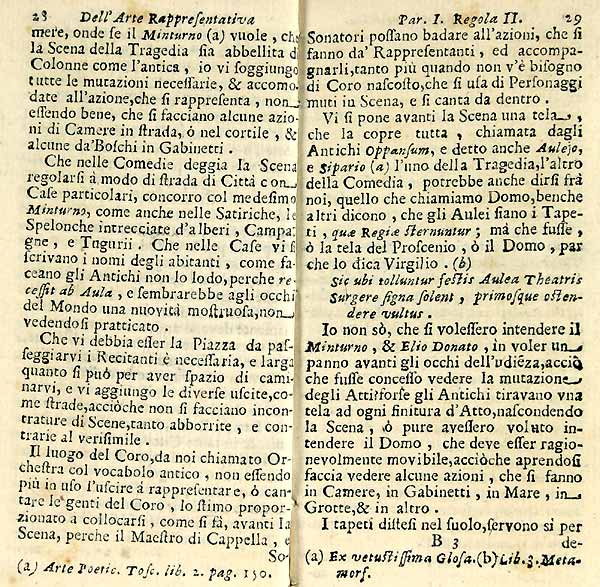 28 Dell'Arte Rappresentativa
mere, onde se il Minturno (a) vuole, che
la Scena della Tragedia sia abbellita di
Colonne come l'antica, io vi soggiungo
tutte le mutazioni necessarie, & accomo
date all'azione,che si rappresenta, non
essendo bene, che si facciano alcune azio-
ni di Camere in strada, ó nel cortile, &
alcune da'Boschi in Gabinetti.
Che nelle Comedie deggia la Scena
regolarsi á modo di strada di Cittá con
Case particolari, concorro col medesimo
Minturno, come anche nelle Satiriche, le
Spelonche intrecciate d'alberi, Campa
gne, e Tugurii. Che nelle Case vi si
scrivano i nomi degli abitanti, come fa-
ceano gli Antichi non lo lodo,perche re-
cessit ab Aula, e sembrarebbe agli occhi
del Mondo una nuovitá mostruosa,non
vedendosi pratticato.
Che vi debbia esser la Piazza da pas-
seggiarvi i Recitanti è necessaria, e larga
quanto si puó per aver spazio di cami-
narvi, e vi aggiungo le diverse uscite,co-
me strade,acciòche non si facciano incon-
trature di Scene,tanto abborrite, e con-
trarie al verisimile.
Il luogo del Coro,da noi chiamato Or-
chestra col vocabolo antico, non essendo
più in uso l'uscire á rappresentare, ó can-
tare le genti del Coro, lo stimo propor-
zionato a collocarsi, come si fá, avanti la
Scena, perche il Maestro di Cappella, e
So-
(a) Arte Poetic. Tosc. lib. 2. pag. 150.
Par. I. Regola II. 29
Sonatori possano badare all'azioni, che si
fanno da' Rappresentanti, ed accompa-
gnarli,tanto più quando non v'è bisogno
di Coro nascosto,che si usa di Personaggi
muti in Scena, e si canta da dentro.
Vi si pone avanti la Scena una tela,
che la copre tutta, chiamata dagli
Antichi Oppansum, e detto anche Aulejo,
e Sipario (a) l'uno della Tragedia,l'altro
della Comedia, potrebbe anche dirsi frà
noi, quello che chiamiamo Domo,benche
altri dicono, che gli Aulei siano i Tape-
ti, quæ Regiæ sternuntur; mà che fusse,
ò la tela del Proscenio, ò il Domo, par
che lo dica Virgilio. (b)
Sic ubi tolluntur festis Aulea Theatris
Surgere signa solent, primosque osten-
dere vultus.
Io non sò, che si volessero intendere il
Minturno, & Elio Donato, in voler un
panno avanti gli occhi dell'udiẽza,acciò
che fusse concesso vedere la mutazione
degli Atti;forse gli Antichi tiravano vna
tela ad ogni finitura d'Atto,nascondendo
la Scena, ó pure avessero voluto in-
tendere il Domo, che deve esser ragio-
nevolmente movibile,acciòche aprendosi
faccia vedere alcune azioni, che si fanno
in Camere, in Gabinetti, in Mare, in
Grotte,& in altro.
I tapeti distesi nel suolo,servono si per
B 3 de-
(a) Ex vetustissima Glosa.(b) Lib.3.Meta-
morf.